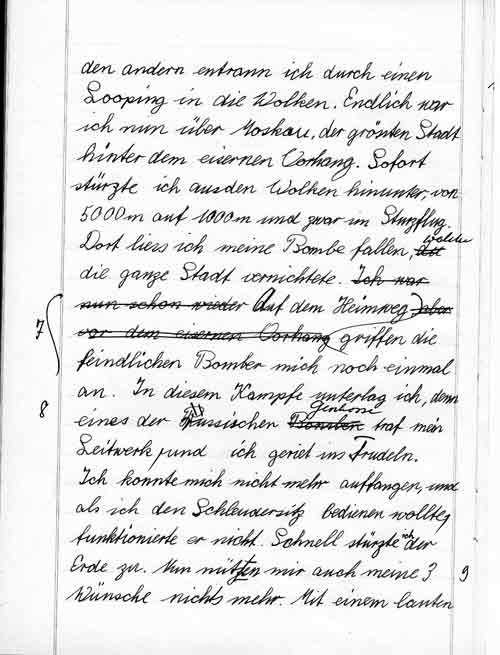 den andern entrann ich durch einen
Looping in die Wolken. Endlich war
ich nun über Moskau, der grössten Stadt
hinter dem eisernen Vorhang. Sofort
stürzte ich aus den Wolken hinunter, von
5000m auf 1000m und zwar im Sturzflug.
welche
Dort liess ich meine Bombe fallen, die
die ganze Stadt vernichtete. Ich war
nun schon wieder Auf dem Heimweg, aber
7
vor dem eisernen Vorhang griffen die
feindlichen Bomber mich noch einmal
8
an. In diesem Kampfe unterlag ich, denn
Geschosse
eines der russischen Bomben traf mein
Leitwerk, und ich geriet ins Trudeln.
Ich konnte mich nicht mehr auffangen, und
als ich den Schleudersitz bedienen wollte,
funktionierte er nicht. Schnell stürzte ich der
Erde zu. Nun nützten mir auch meine 3
9
Wünsche nichts mehr. Mit einem lauten